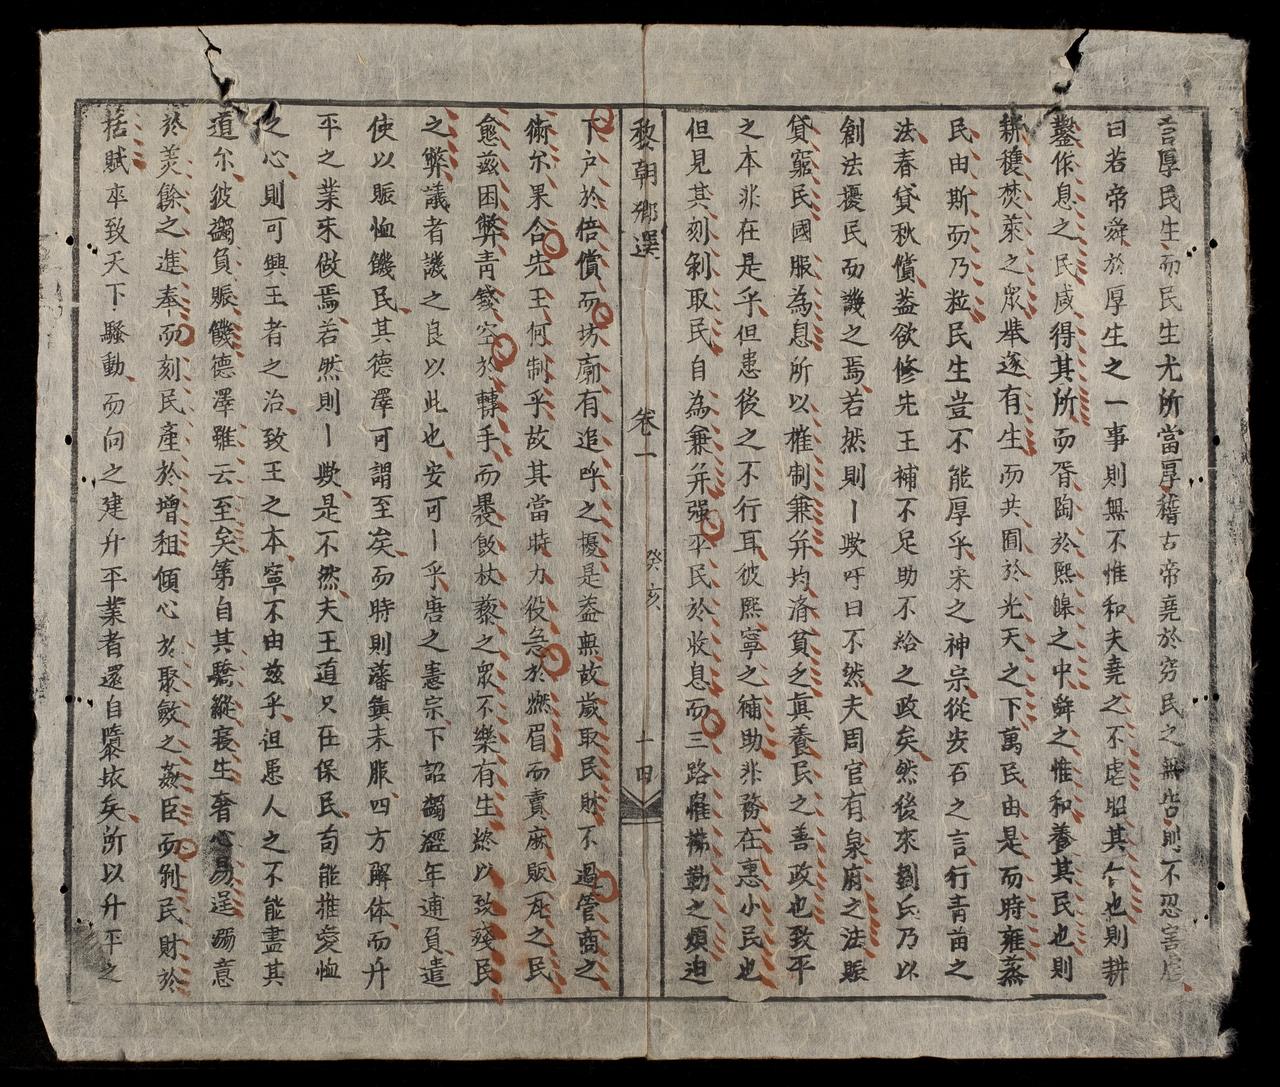 言厚民生而民生尤所當厚稽古帝堯於窮民之無告則不忍害虐
曰若帝舜於厚生之一事則無不惟和夫堯之不虐昭其个也則耕
鑿作息之民咸得其所而胥陶於熙皞之中舜之惟和養其民也則
耕穫焚萊之眾举遂有生而共囿於光天之下萬民由是而時雍蒸
民由斯而乃粒民生豈不能厚乎宋之神宗從安石之言行青苗之
法春貸秋償蓋欲修先王補不足助不給之政矣然後來劉氏乃以
創法擾民而譏之焉若然則丨欤吁曰不然夫周官有泉府之法賑
貸窮民國服為息所以榷制兼并均濟貧乏真養民之善政也致平
之本非在是乎但患後之不行耳彼熙寧之補助非務在惠小民也
但見其刻剝取民自為兼并強平民於收息而三路惟拂勤之煩迫
敎朝鄉選 卷一 癸亥 十四
下户於倍償而坊廟有追呼之擾是蓋無故歲取民財不過管商之
術尔果合先王何制乎故其當時力役急於燃眉而賣麻販死之民
愈兹困弊青錢空於轉手而曩飲杖藜之眾不樂有生終以致殘民
之弊議者譏之良以此也安可丨乎唐之憲宗下詔蠲逕年逋負遣
使以賑恤饑民其德澤可謂至矣而時則藩鎮未服四方解体而升
平之業未做焉若然則丨欤是不然夫王道只在保民苟能推愛恤
之心則可興王者之治致王之本寧不由兹乎但患人之不能盡其
道尔彼蠲負賑饑德澤雖云至矣第自其驕縱寖生奢心易逞、意
於羙餘之進奉而刻民產於增租傾心於聚斂之姦臣而剥民財於
括賦卒致天下騷動而向之建升平業者還自隳坏矣所以升平之